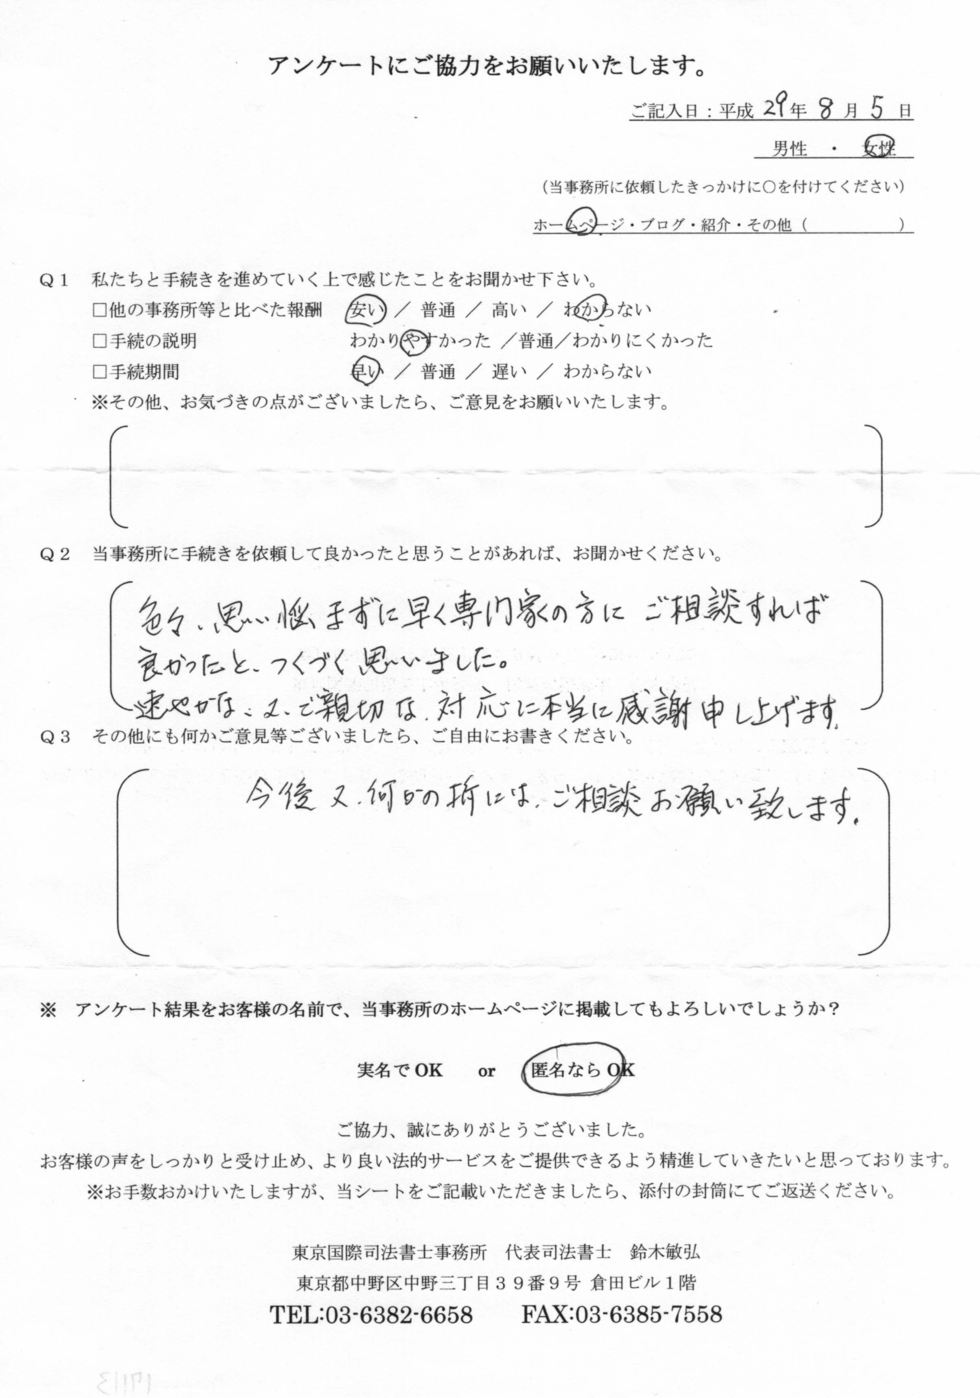 アンケートにご協力をお願いいたします。
ご記入日：平成 29年 8月 5日
男性 ・ 女性
（当事務所に依頼したきっかけに○を付けてください）
ホームページ・ブログ・紹介・その他（　　　　　）
Ｑ１　私たちと手続きを進めていく上で感じたことをお聞かせ下さい。
□他の事務所等と比べた報酬　安い ／ 普通 ／ 高い ／ わからない
□手続の説明　わかりやすかった ／普通／わかりにくかった
□手続期間　早い ／ 普通 ／ 遅い ／ わからない
※その他、お気づきの点がございましたら、ご意見をお願いいたします。
Ｑ２　当事務所に手続きを依頼して良かったと思うことがあれば、お聞かせください。
色々、思い悩まずに早く専門家の方に ご相談すれば
良かったと、つくづく思いました。
速やかな、又、ご親切な、対応に本当に感謝申し上げます。
Ｑ３　その他にも何かご意見等ございましたら、ご自由にお書きください。
今後 又、何かの折には、ご相談お願い致します。
※　アンケート結果をお客様の名前で、当事務所のホームページに掲載してもよろしいでしょうか？
実名でOK　or　匿名ならOK
ご協力、誠にありがとうございました。
お客様の声をしっかりと受け止め、より良い法的サービスをご提供できるよう精進していきたいと思っております。
※お手数おかけいたしますが、当シートをご記載いただきましたら、添付の封筒にてご返送ください。
東京国際司法書士事務所　代表司法書士　鈴木敏弘
東京都中野区中野三丁目３９番９号 倉田ビル１階
TEL:03-6382-6658　FAX:03-6385-7558